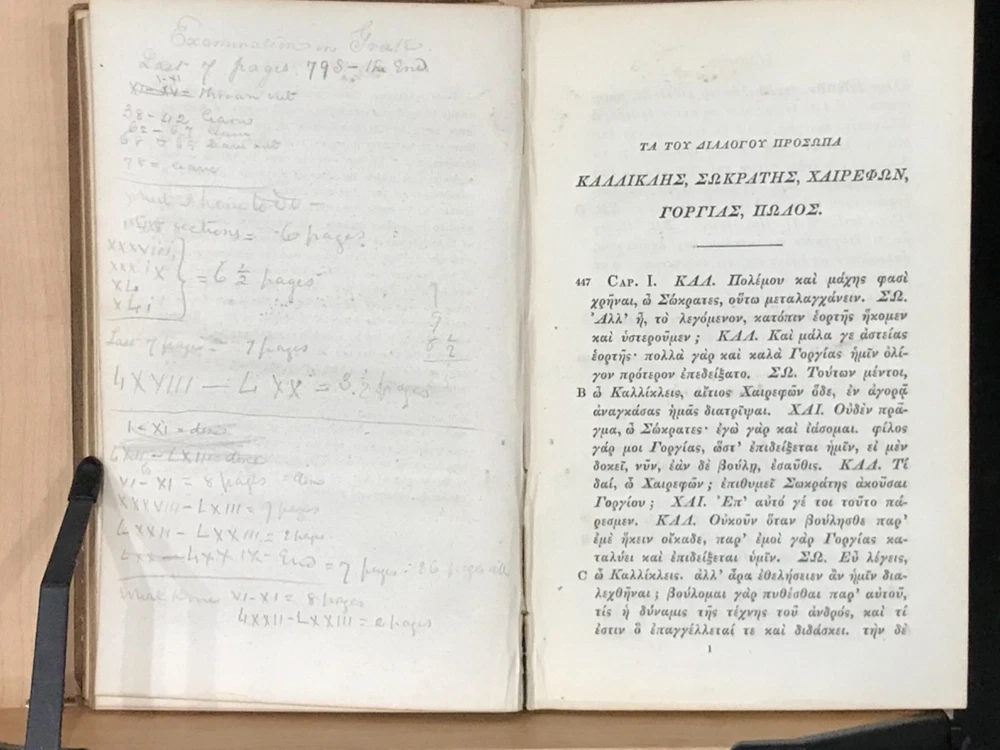 Examination in Greek.
Last 7 pages. 798 – the End.
38 – 42 learn
62 – 67 learn
what I have to do –
sections = 6 pages.
xxxviii
xxxix
xL
xLi
= 6 1/2 pages
Last 7 pages = 7 pages
LXVIII — LXX = 3 1/2 pages
I – XI = done
LXII – LXIII = done
VI – XI = 8 pages = done
LXXII – LXXIII = 2 pages
LXXIX – End = 7 pages =
what done VI – XI = 8 pages
LXXII – LXXIII = 2 pages
ΤΑ ΤΟΥ ΔΙΑΛΟΓΟΥ ΠΡΟΣΩΠΑ
ΚΑΛΛΙΚΛΗΣ, ΣΩΚΡΑΤΗΣ, ΧΑΙΡΕΦΩΝ,
ΓΟΡΓΙΑΣ, ΠΩΛΟΣ.
447 CAP. I. ΚΑΛ. Πολέμου καὶ μάχης φασὶ
χρῆναι, ὦ Σώκρατες, οὕτω μεταλαγχάνειν. ΣΩ.
Ἀλλ’ ἦ, τὸ λεγόμενον, κατόπιν ἑορτῆς ἥκομεν
καὶ ὑστεροῦμεν; ΚΑΛ. Καὶ μάλα γε ἀστείας
ἑορτῆς· πολλὰ γὰρ καὶ καλὰ Γοργίας ἡμῖν ὀλί-
γον πρότερον ἐπεδείξατο. ΣΩ. Τούτων μέντοι,
B ὦ Καλλίκλεις, αἴτιος Χαιρεφῶν ὅδε, ἐν ἀγορᾷ
ἀναγκάσας ἡμᾶς διατρῖψαι. ΧΑΙ. Οὐδὲν πρᾶ-
γμα, ὦ Σώκρατες· ἐγὼ γὰρ καὶ ἰάσομαι. φίλος
γάρ μοι Γοργίας, ὥστ’ ἐπιδείξεται ἡμῖν, εἰ μὲν
δοκεῖ, νῦν, ἐὰν δὲ βούλῃ, ἐσαῦθις. ΚΑΛ. Τί
δαί, ὦ Χαιρεφῶν; ἐπιθυμεῖ Σωκράτης ἀκοῦσαι
Γοργίου; ΧΑΙ. Ἐπ’ αὐτό γέ τοι τοῦτο πά-
ρεσμεν. ΚΑΛ. Οὐκοῦν ὅταν βούλησθε παρ’
ἐμὲ ἥκειν οἴκαδε, παρ’ ἐμοὶ γὰρ Γοργίας κα-
ταλύει καὶ ἐπιδείξεται ὑμῖν. ΣΩ. Εὖ λέγεις,
C ὦ Καλλίκλεις. ἀλλ’ ἆρα ἐθελήσειεν ἂν ἡμῖν δια-
λεχθῆναι; βούλομαι γὰρ πυθέσθαι παρ’ αὐτοῦ,
τίς ἡ δύναμις τῆς τέχνης τοῦ ἀνδρός, καὶ τί
ἐστιν ὃ ἐπαγγέλλεταί τε καὶ διδάσκει. τὴν δὲ
1